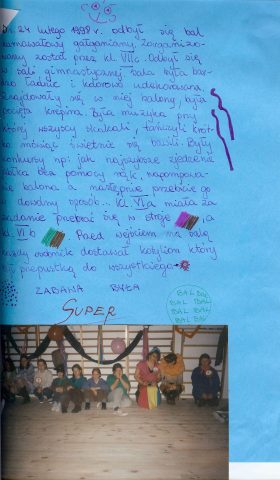 Dn. 24 lutego 1999 r. odbył się bal
karnawałowy gałganiany, zorganizo-
wany został przez kl. VIIc. Odbył się
w sali gimnastycznej sala była bar-
dzo ładnie i kolorowo udekorowana,
znajdowały się w niej balony, była
pocięta krepina. Była muzyka przy
której wszyscy skakali, tańczyli krót-
ko mówiąc świetnie się bawili. Były
konkursy np. jak najszybsze zjedzenie
jabłka bez pomocy rąk, napompowa-
nie balona a następnie przebicie go
w dowolny sposób... kl. VI a miała za
zadanie przebrać się w stroje a
kl. VI b Przed wejściem na salę
każdy uczestnik dostawał kotylion który
był przepustką do wszystkiego
ZABAWA BYŁA
SUPER
BAL BAL
BAL BAL
BAL BAL
BAL BAL